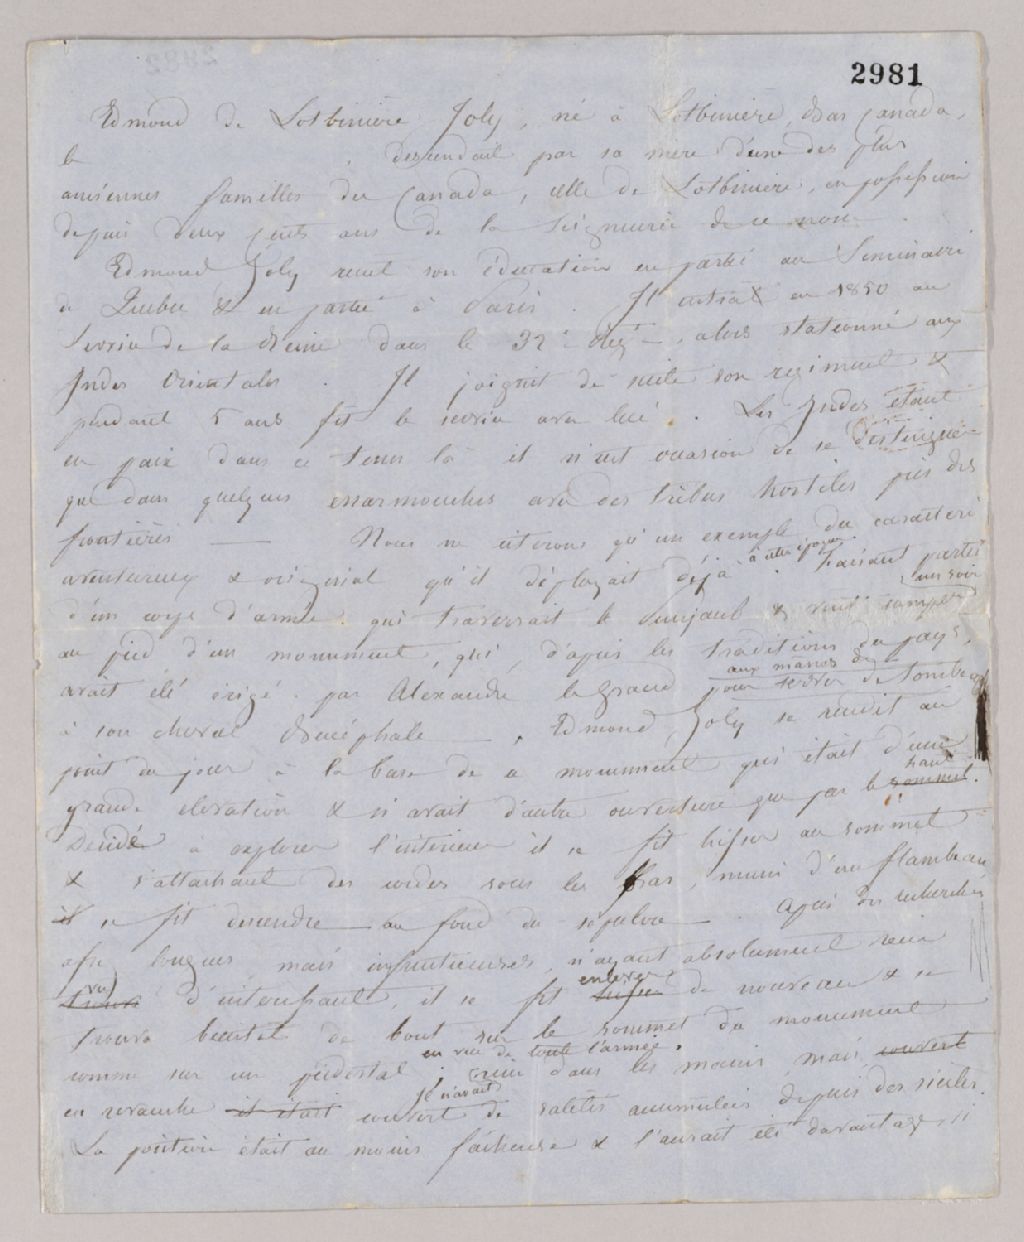 2981
Edmond de Lotbinière Joly, né à Lotbinière, Bas Canada,
le descendait par sa mère d'une des plus
anciennes familles du Canada, celle de Lotbinière, en possession
depuis deux cents ans de la Seigneurie de ce nom.
Edmond Joly recut son éducation en partie au Séminaire
de Quebec & en partie à Paris. Il entra en 1850 au
Service de la Reine dans le 32e Regt, alors stationné aux
Indes Orientales. Il joignit de suite son regiment &
pendant 5 ans fit le service avec lui. Les Indes étant
en paix dans ce tems là il n'eut occasion de se distinguer
que dans quelques escarmouches avec des tribus hostiles près des
frontières — Nous ne citerons qu'un exemple du caractère
aventureux & original qu'il déployait déjà à cette époque. Faisant partie
d'un corps d'armée qui traversait le Punjaub & vint un soir camper
au pied d'un monument, qui, d'après les traditions du pays,
avait été érigé par Alexandre le Grand aux manes de pour servir de tombeau
à son cheval Bucéphale —, Edmond Joly se rendit au
point du jour à la base de ce monument qui était d'une
grande elevation & n'avait d'autre ouverture que par le sommet haut.
Decidé à explorer l'intérieur il se fit hisser au sommet
& s'attachant des cordes sous les bras, muni d'un flambeau
il se fit descendre au fond du sépulcre —. Après des recherches
assez longues mais infructueuses, n'ayant absolument rien
trouvé vu d'interessant, il se fit hisser enlever de nouveau & se
trouva bientot de bout sur le sommet du monument
comme sur un piédestal en vue de toute l'armée. rien dans les mains, mais couvert
en revanche il était Il n'avait couvert de saletés accumulées depuis des siècles.
La position était au moins fâcheuse & l'aurait été davantage, si